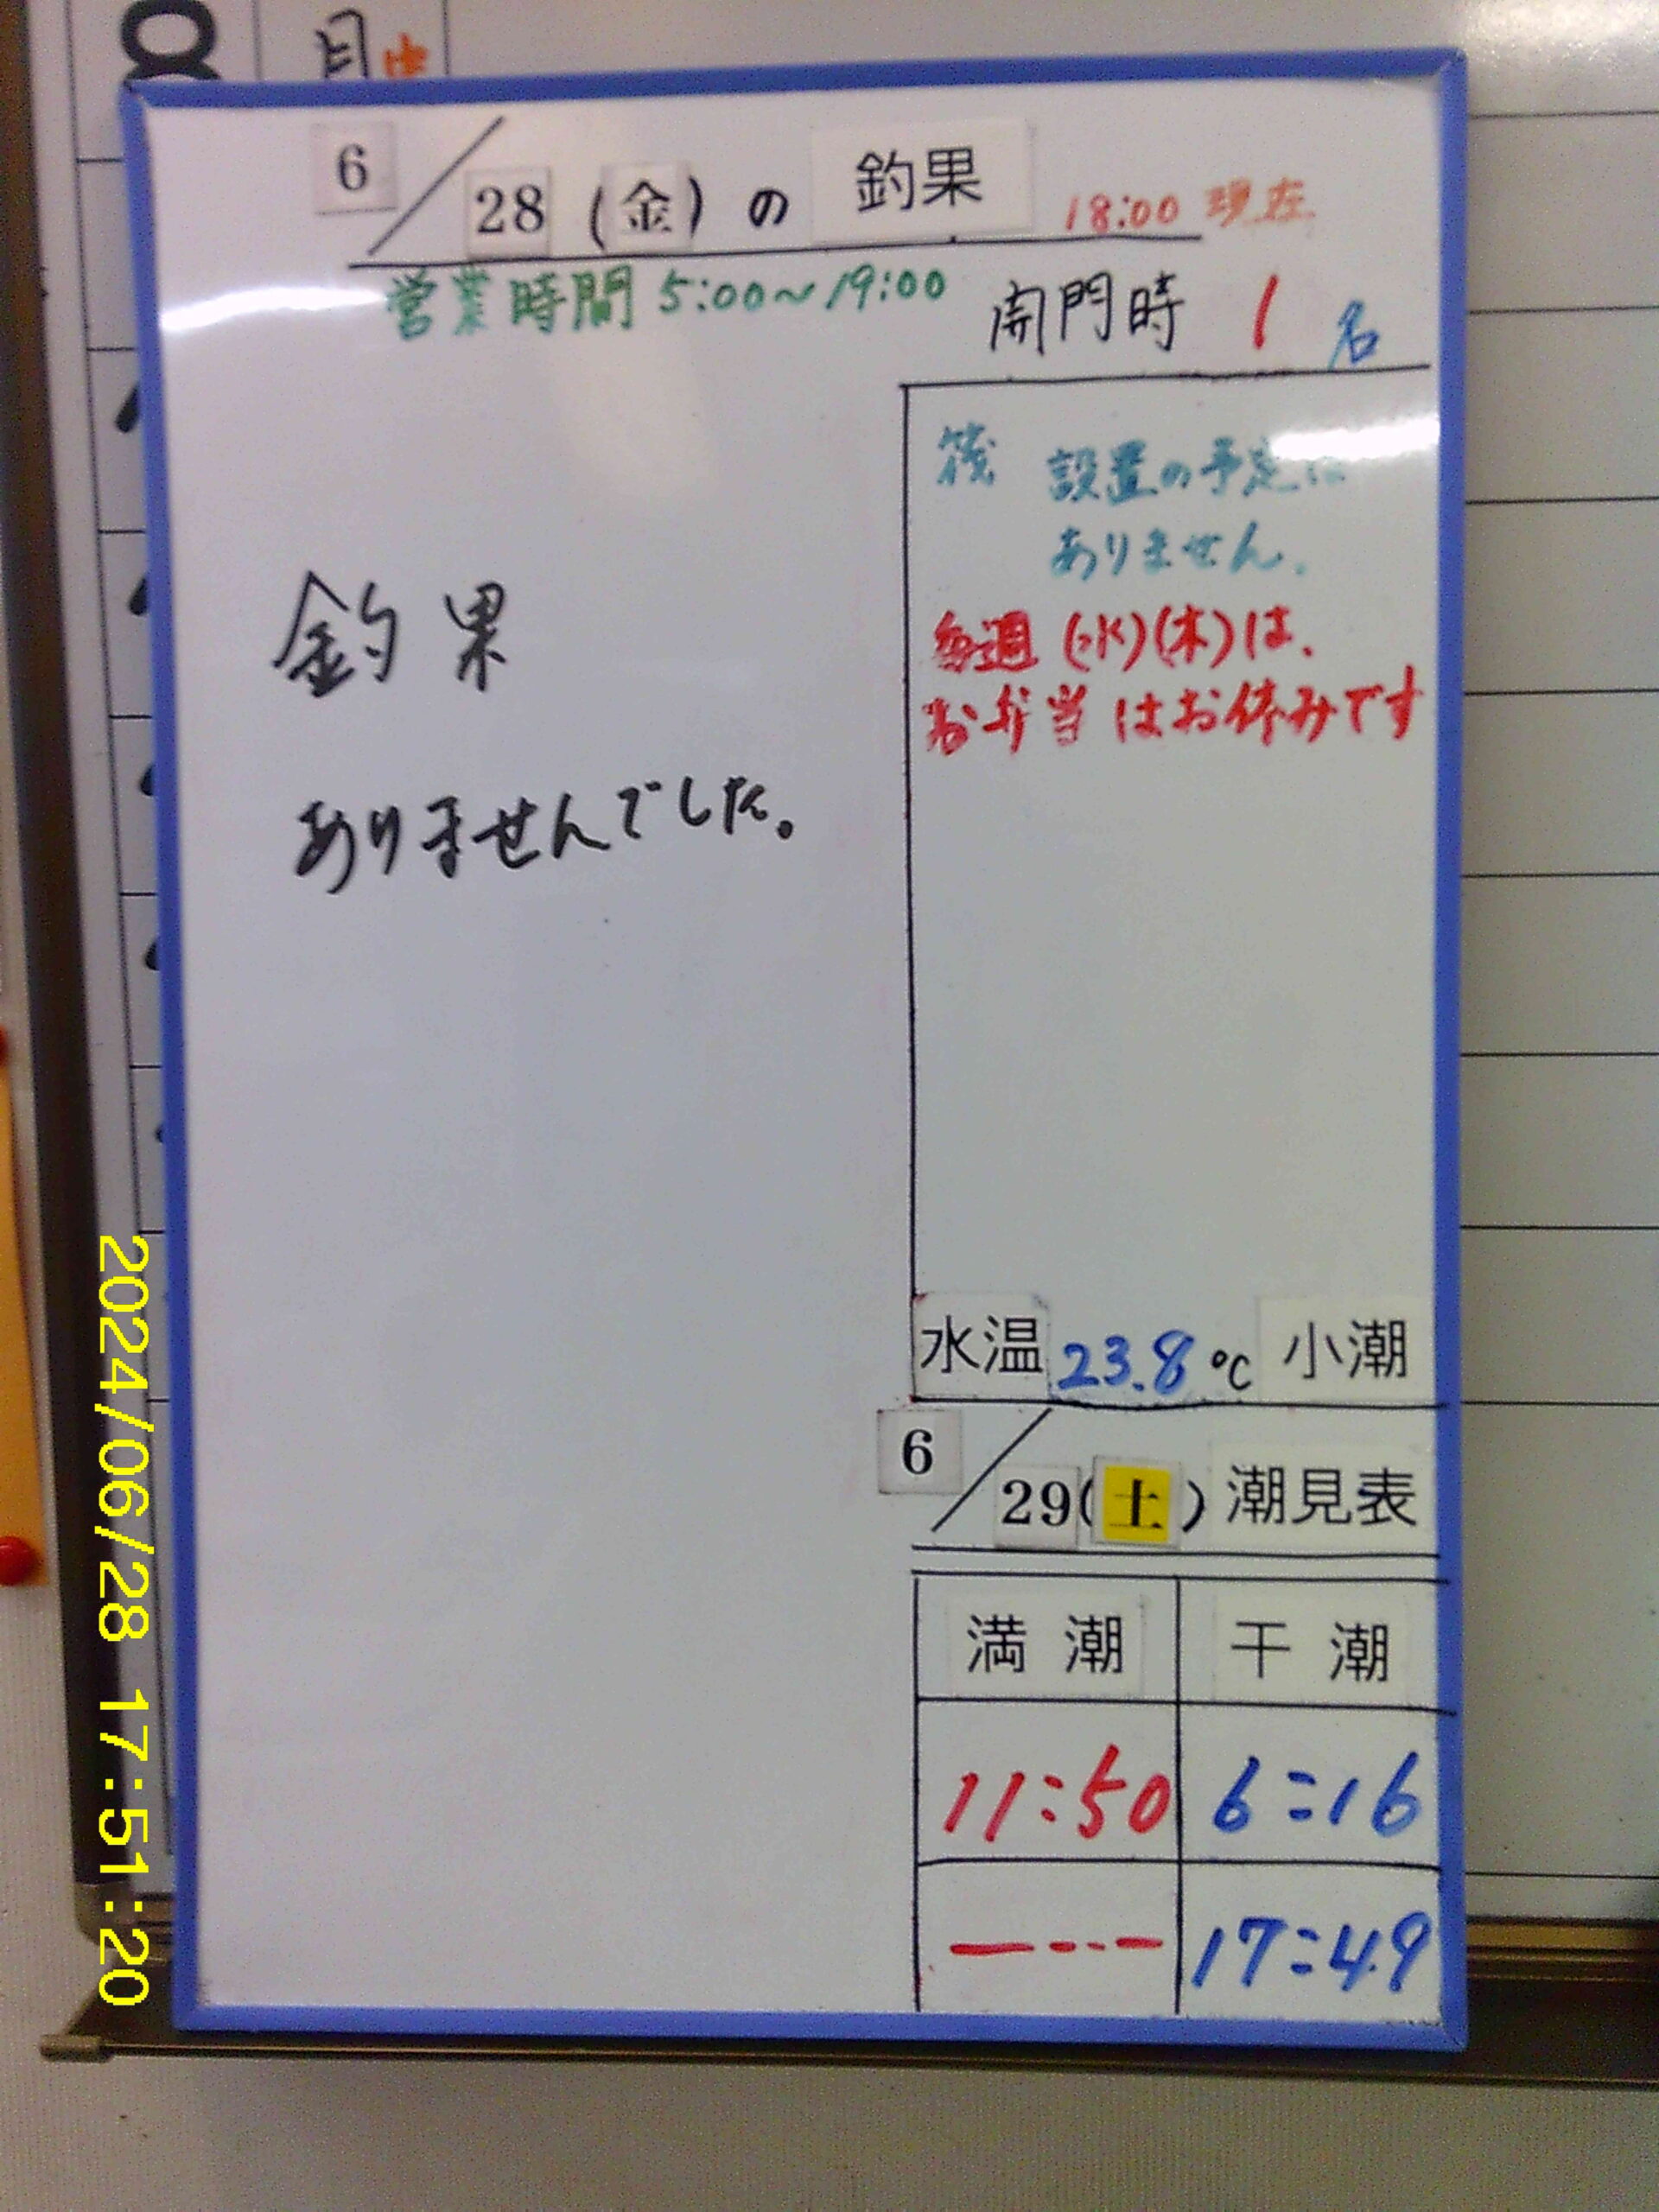 月
6/28(金)の 釣果 18:00 現在
営業時間 5:00~19:00 開門時 1 名
筏 設置の予定は
ありません.
毎週(水)(木)は、
お弁当はお休みです
釣果
ありませんでした。
水温 23.8 ℃ 小潮
6/29(土)潮見表
満潮 干潮
11:50 6:16
--:-- 17:49
2024/06/28 17:51:20